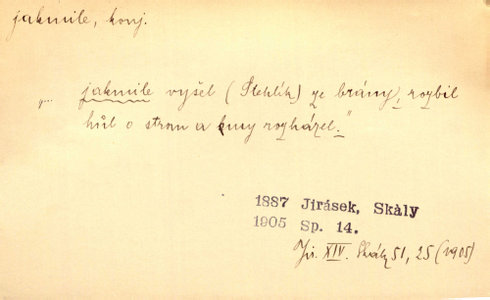 jakmile, konj.
„... jakmile vyšel (Stehlík) ze brány, rozbil
hůl o stranu a kusy rozházel."
1887 Jirásek, Skály
1905 Sp. 14.
Jir. XIV. Skály 51, 25 (1905)